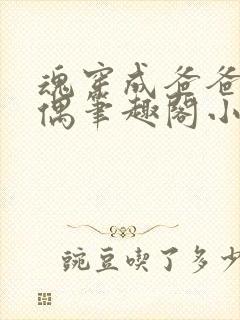 魂穿成爸爸
偶笔趣阁小
豌豆喫了多少